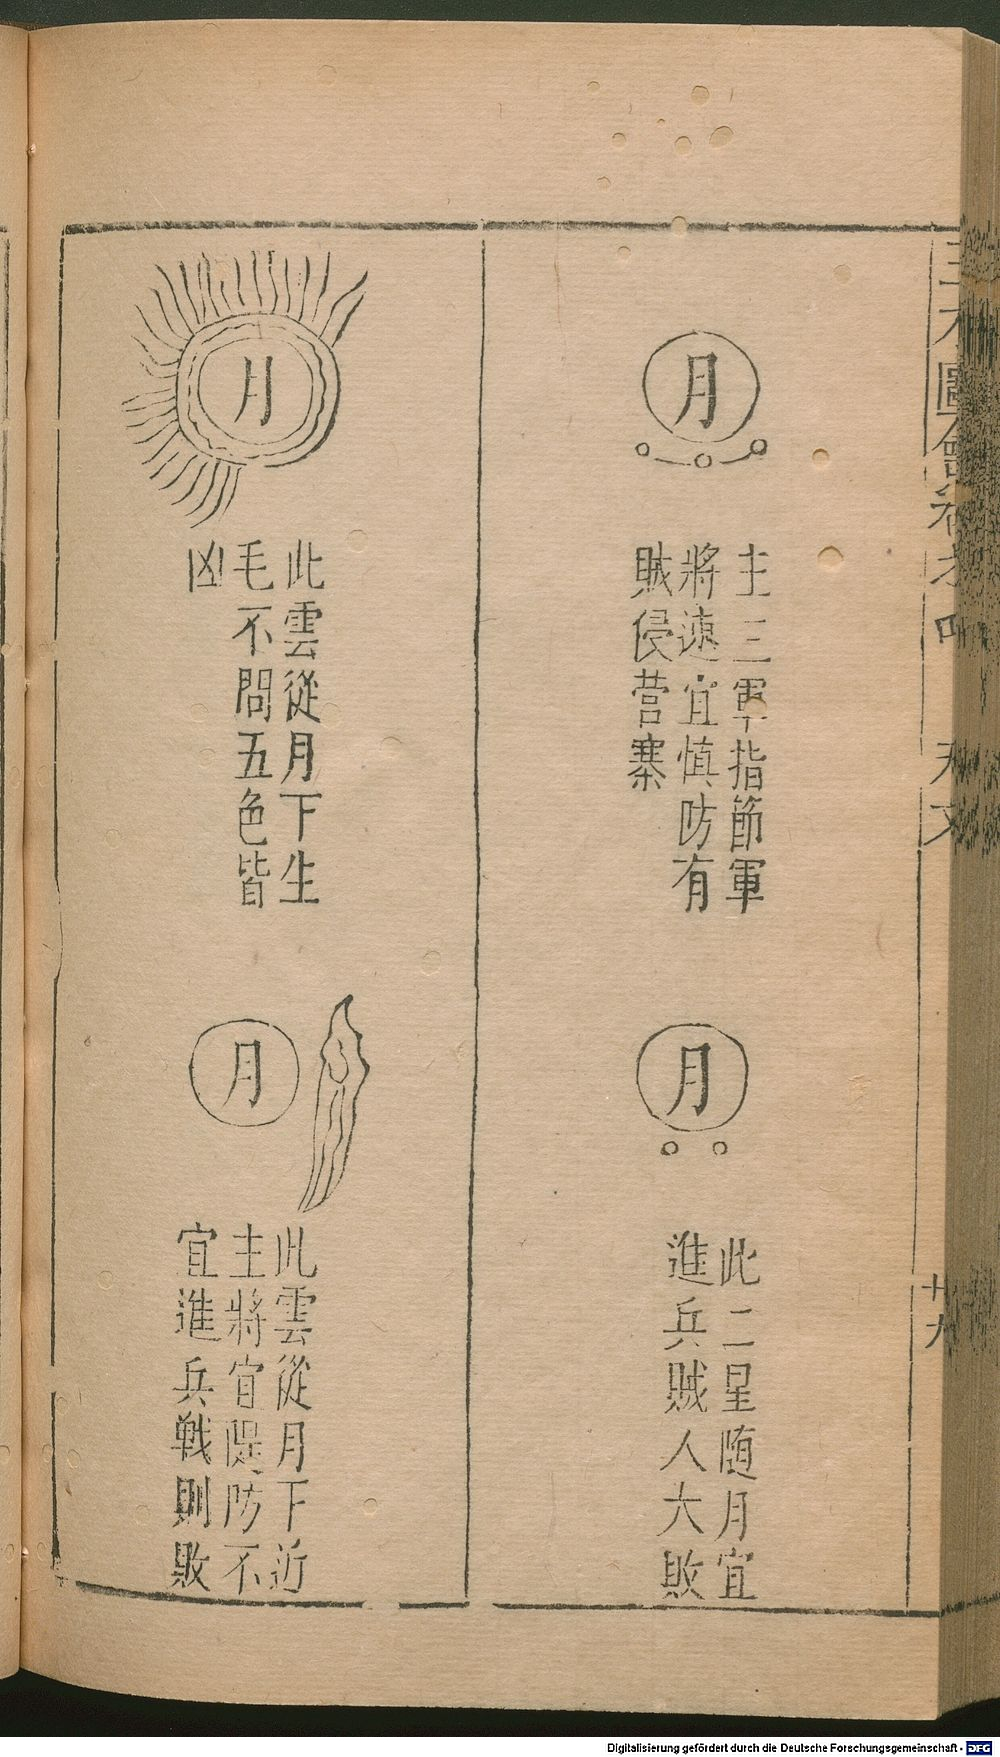 三才圖會卷之四
天文
廿九
月
主三軍指節軍
將速宜慎防有
賊侵营寨
月
此二星随月宜
進兵賊人大敗
月
此雲從月下生
毛不問五色皆
凶
月
此雲從月下近
主將宜隄防不
宜進兵戦則敗
Digitalisierung gefördert durch die Deutsche Forschungsgemeinschaft - DFG